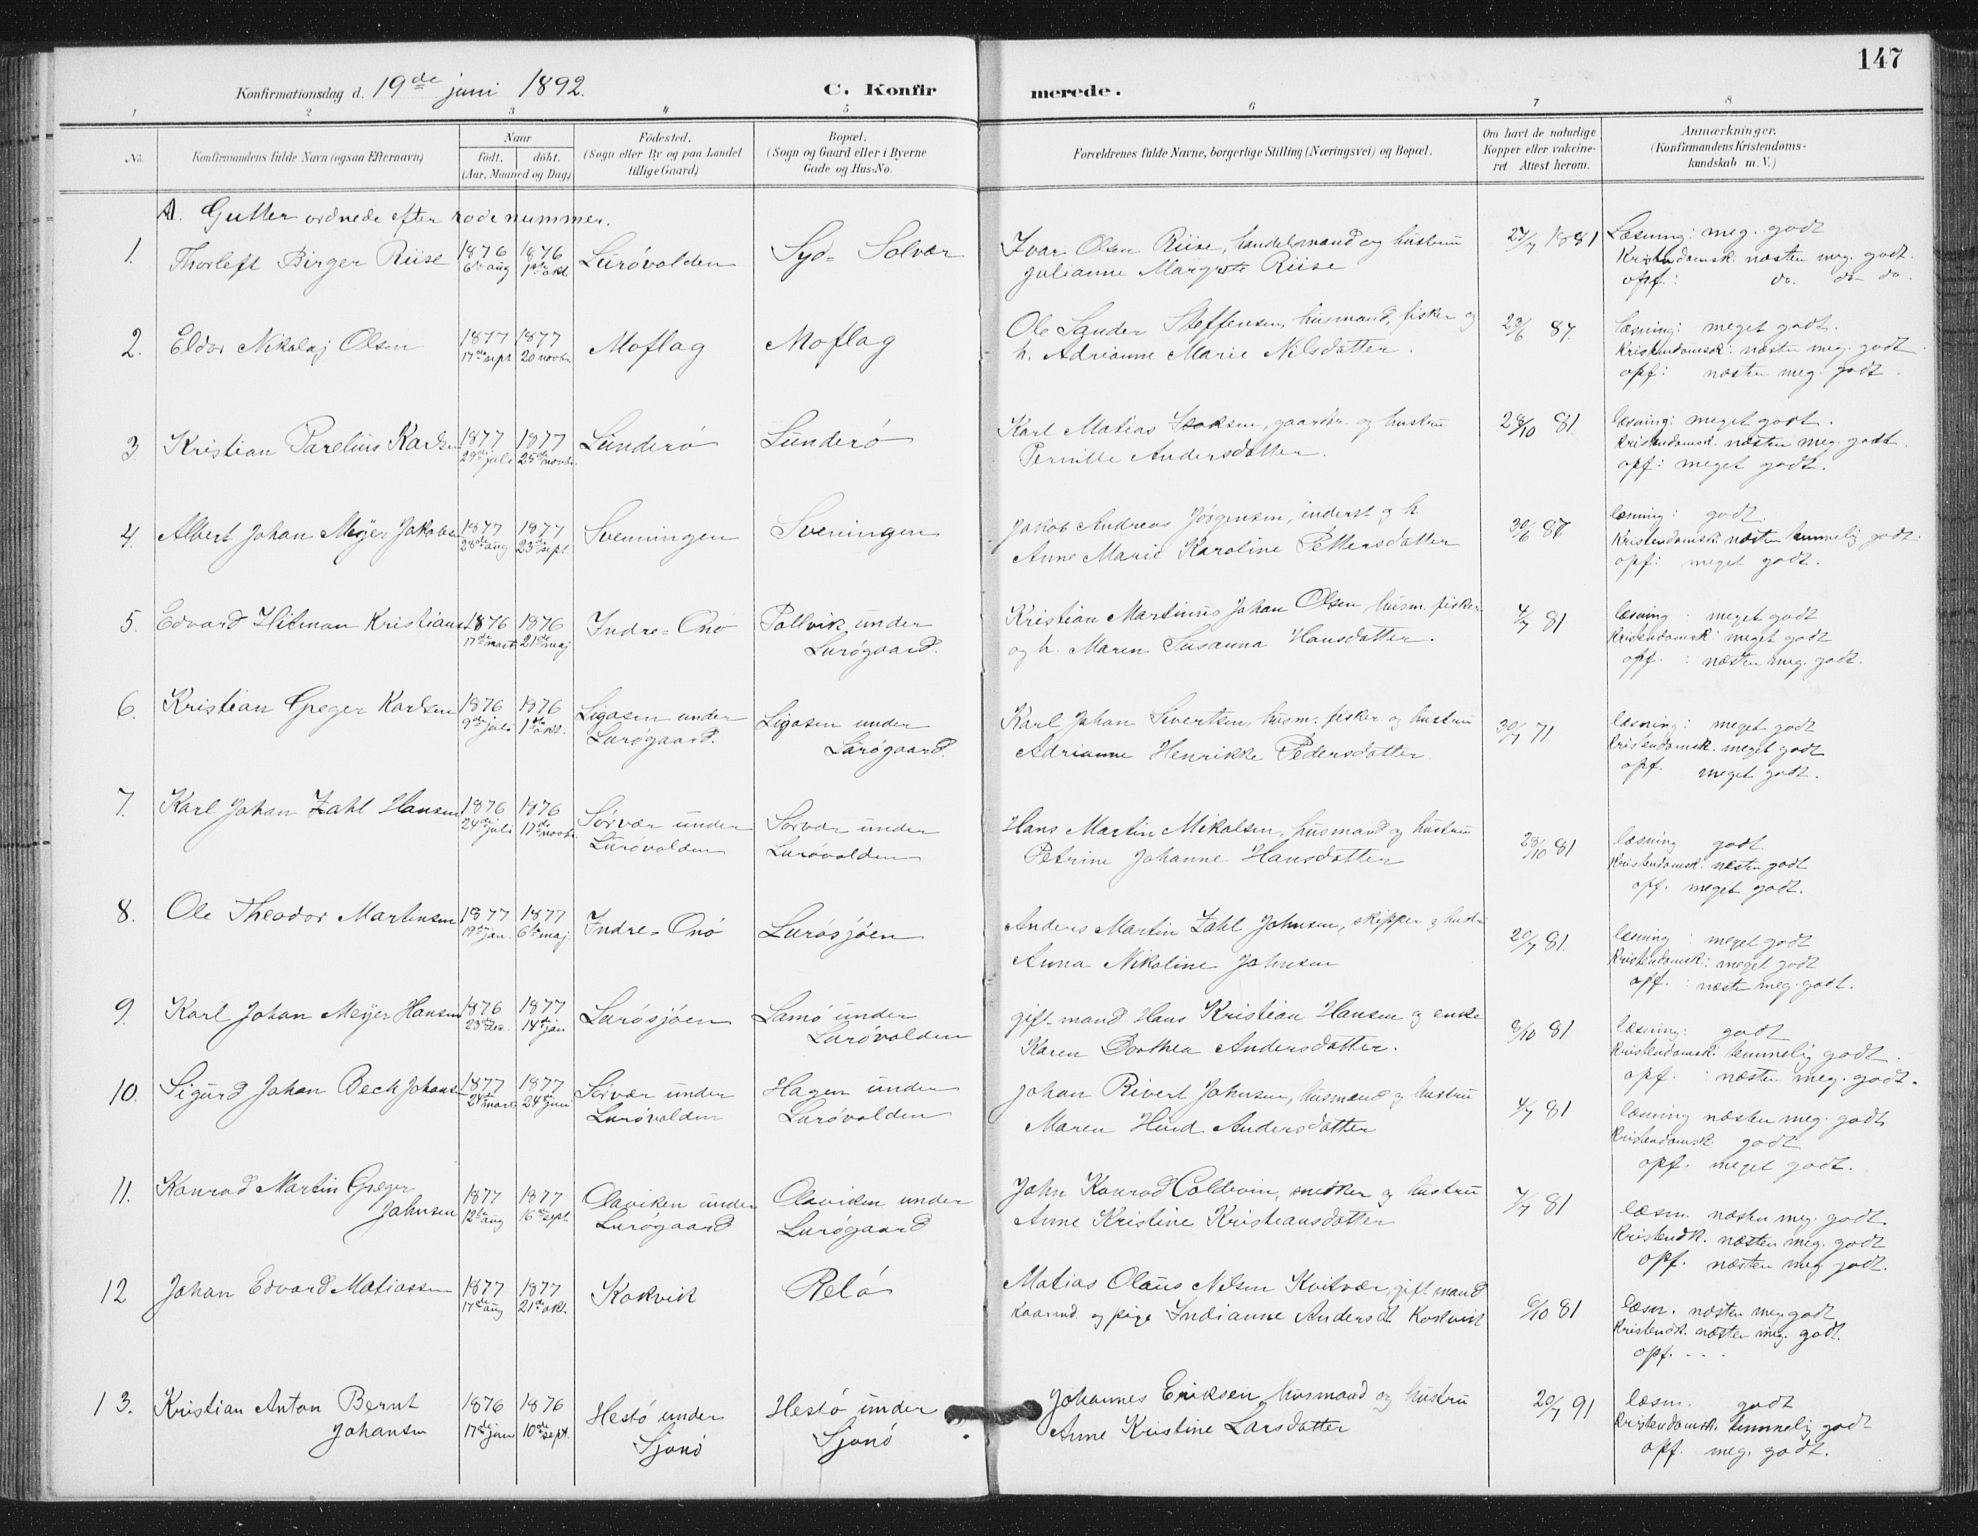 147
Konfirmationsdag d. 19de juni 1892. C. Konfirmerede.
1 2 3 4 5 6 7 8
No. Konfirmandens fulde Navn (ogsaa Efternavn) Naar født. døbt. (Aar, Maaned og Dag) Fødested. (Sogn eller By og paa Landet tillige Gaard) Bopæl. (Sogn og Gaard eller i Byerne Gade og Hus-No. Forældrenes fulde Navne, borgerlige Stilling (Næringsvei) og Bopæl. Om havt de naturlige Kopper eller vakcineret Attest herom. Anmærkninger. (Konfirmandens Kristendomskundskab m. V.)
A. Gutter ordnede efter rodenummer.
1. Thorleft Birger Riise 1876 6te aug 1876 1ste okt Lurøvolden Syd-Solvær Ivar Olsen Riise, handelsmand og hustru
Julianne Margrete Riise 27/7 1881 Læsning: meg. godt
Kristendomsk. næsten meg. godt.
opf.: do. do do.
2. Eldor Nikolaj Olsen 1877 17de sept 1877 20 novbr. Moflag Moflag Ole Sander Steffensen, husmand, fisker og
h. Adrianne Marie Nilsdatter. 23/6 87. læsning: meget godt.
Kristendomsk: næsten meg. godt
opf: næsten meg. godt.
3 Kristian Parelius Karlsen 1877 29de juli 1877 25de novbr. Lunderø Lunderø Karl Matias Isaksen, gaardbr. og hustru
Pernille Andersdatter. 28/10 81 læsning: meget godt.
Kristendomsk. næsten meg. godt
opf: meget godt.
4. Albert Johan Meyer Jakobsen 1877 28de aug 1877 23de sept. Sveningen Sveningen Jakob Andreas Jørgensen, inderst og h.
Anne Marie Karoline Pettersdatter 30/6 87 læsning: godt
Kristendomsk. næsten temmelig godt.
opf: meget godt.
5. Edvard Hitman Kristiansen 1876 17de marts 1876 21de maj Indre-Onø Pollvik under
Lurøgaard. Kristian Martinus Johan Olsen, husm. fisker
og h. Maren Susanna Hansdatter. 4/7 81 læsning: meget godt
Kristendomsk: meget godt
opf.: næsten meg. godt.
6. Kristian Greger Karlsen 1876 9de juli 1876 1ste okt. Ligosen under
Lurøgaard. Ligosen under
Lurøgaard. Karl Johan Sivertsen, husm. fisker og hustru
Adrianne Henrikke Pedersdatter 30/7 71 læsning: meget godt
Kristendomsk. meget godt
opf. meget godt.
7. Karl Johan Zahl Hansen 1876 24de juli 1876 17de novbr. Sørvær under
Lurøvolden Sørvær under
Lurøvolden Hans Martin Mikalsen, husmand og hustru
Petrine Johanne Hansdatter 28/10 81 læsning godt
Kristendomsk. næsten godt
opf. meget godt.
8. Ole Theodor Martinsen 1877 19de jan. 1877 6te maj. Indre-Onø Lurøsjøen Anders Martin Zahl Johnsen, skipper og hustru
Anna Nikoline Johnsen 20/7 81. læsning: meget godt
Kristendomsk: meget godt
opf.: næsten meg. godt.
9. Karl Johan Meyer Hansen 1876 23de dec. 1877 14de jan Lurøsjøen Lamø under
Lurøvolden gift mand Hans Kristian Hansen og enke
Karen Dorthea Andersdatter. 8/10 81 læsning: godt
Kristendomsk: temmelig godt.
opf.: næsten meg. godt.
10. Sigurd Johan Beck Johansen 1877 24de marts 1877 24de juni Sørvær under
Lurøvolden Hagen under
Lurøvolden Johan Rivert Johnsen, husmand og hustru
Maren Hind Andersdatter 4/7 81 læsning næsten meg. godt
Kristendomsk. godt
opf. meget godt.
11. Konrad Martin Greger
Johnsen 1877 12te aug 1877 16de sept Olaviken under
Lurøgaard Olaviken under
Lurøgaard John Konrad Coldevin, snedker og hustru
Anne Kristine Kristiansdatter 7/7 81 læsn. næsten meg. godt.
Kristendk. næsten meg. godt
opf. næsten meg godt.
12 Johan Edvard Matiassen 1877 17de aug 1877 21de okt. Kokvik Relø Matias Olaus Nilsen Kvitvær, gift mand
kaarmd. og pige Indianne Andersdt Kokvik 6/10 81 læsn. næsten meg godt
Kristendk. næsten meg. godt.
opf. - - -
13. Kristian Anton Bernt
Johansen 1876 17de juni 1876 10de sept. Hestø under
Sjonø Hestø under
Sjonø Johannes Eriksen, husmand og hustru
Anne Kristine Larsdatter 20/7 91 læsn. godt
Kristendomsk. temmelig godt
opf. meg. godt.